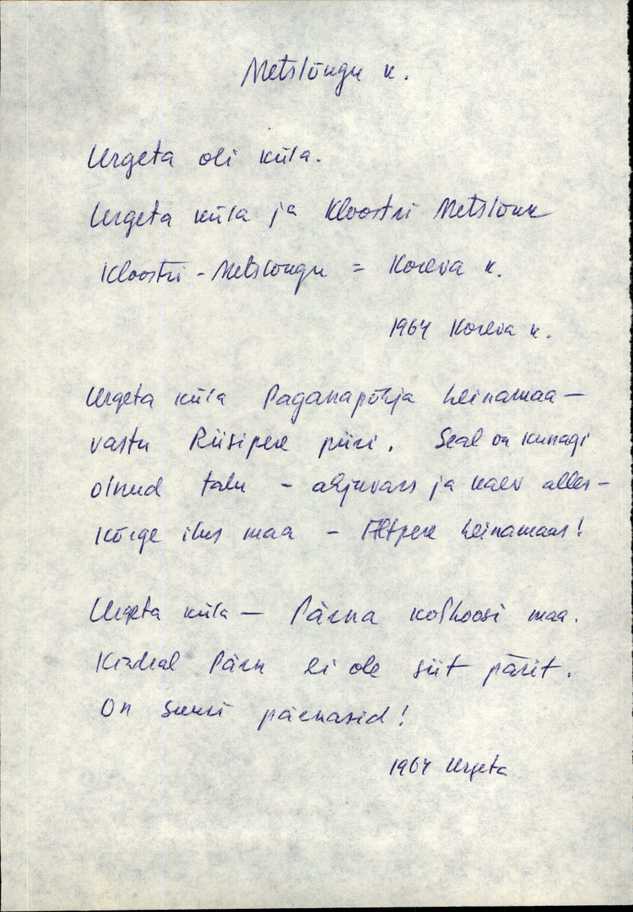 Metslõugu k.
Urgeta oli küla.
Urgeta küla ja Kloostri Metslõuk
Kloostri-Metslõugu = Koreva k.
1964 Koreva k.
Urgeta küla Paganapõhja heinamaa –
vastu Riisipere piiri. Seal on kunagi
olnud talu – ahjuvars ja kaev alles –
kõige ilus maa – Altpere heinamaas!
Urgeta küla – Pärna kolhoosi maa.
Kindral Pärn ei ole siit pärit.
On suuri pärnasid!
1964 Urgeta